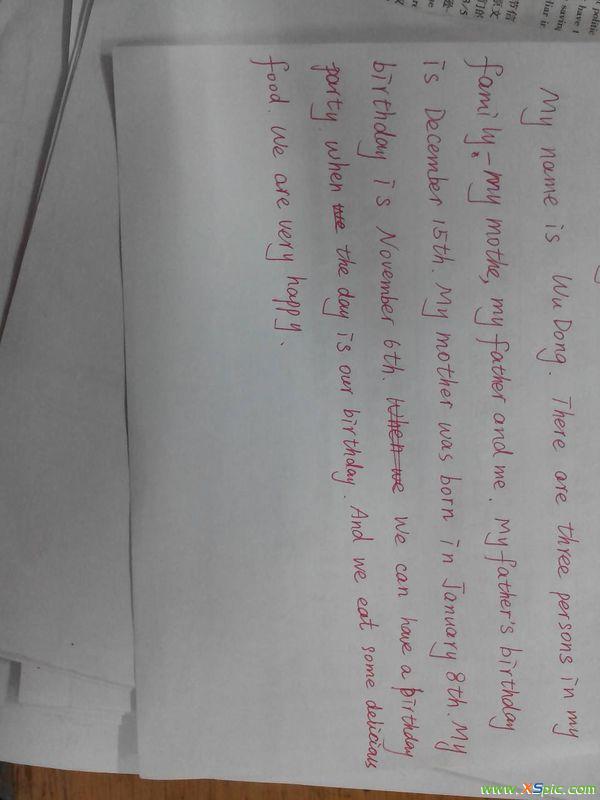 My name is Wu Dong. There are three persons in my
family. - my mothe, my father and me. My father's birthday
is December 15th. My mother was born in January 8th. My
birthday is November 6th. When we We can have a birthday
party. when the the day is our birthday. And we eat some delicious
food. We are very happy.
www.XSpic.com